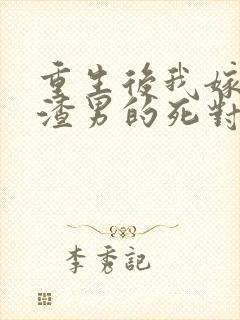 重生後我嫁
渣男的死對
李秀記